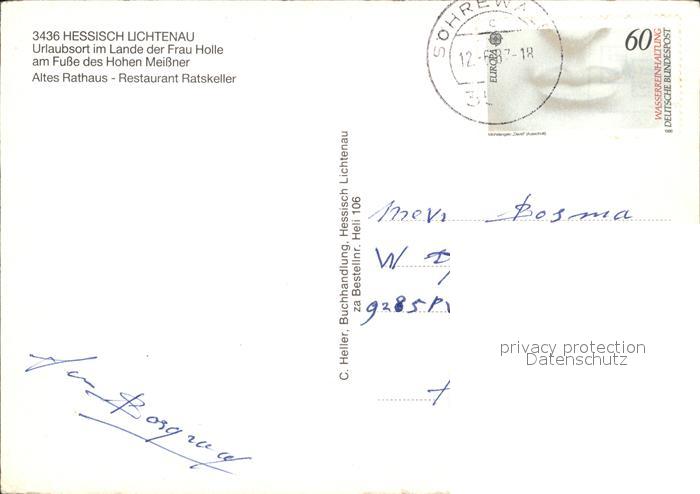 3436 HESSISCH LICHTENAU
Urlaubsort im Lande der Frau Holle
am Fuße des Hohen Meißner
Altes Rathaus - Restaurant Ratskeller
SÖHREWALD
c
12.-6.87-18
EUROPA
60
WASSERREINHALTUNG
DEUTSCHE BUNDESPOST
1986
C. Heller, Buchhandlung, Hessisch Lichtenau
za Bestellnr. Heli 106
Mevr. Bosma
W
9285P
privacy protection
Datenschutz